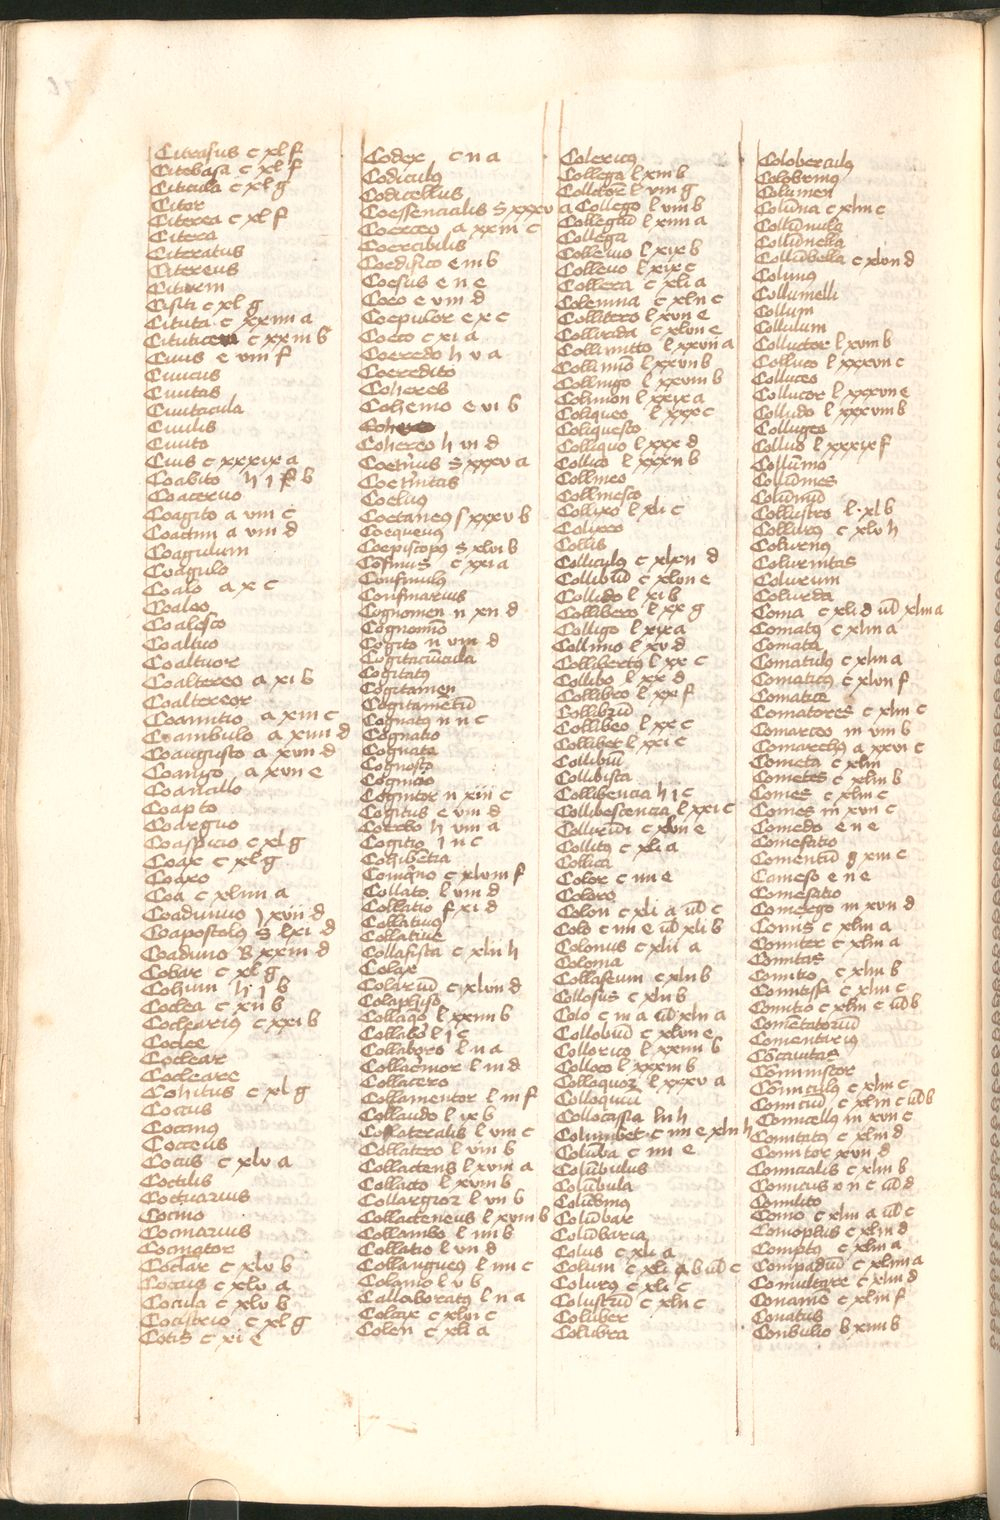 Citrasus c xl f
Citebasa c xl f
Citicula c xl g
Citor
Citerea c xl f
Citera
Citeratus
Citereus
Citarim
Cisiti c xl g
Cituta c xxiiii a
c xxiii b
Ciuis e viii f
Ciuicus
Ciuitas
Ciuitacula
Ciuilis
Ciuito
Cius c xxxix a
Coabito h j b
Coaceruo
Coagito a viii c
a viii d
Coagulum
Coagulo
Coalo a x c
Coaleo
Coalesco
Coaltuo
Coaltuor
Coaltereo a xi b
Coaltereor
Coamitio a xiii c
Coambulo a xiiii d
Coaugusto a xvii d
Coango a xvii e
Coancillo
Coapto
Coarguo
Coaspicio c xl g
Coax c xl g
Coaxo
Coa c xliiii a
Coadunuo j xvii d
Coapostolus s lxi d
Coaduno xxiii d
Cobar c xl g
Cohum h j b
Coclea c xii b
Coclearius c xxi b
Coclee
Coclear
Cocleare
Cohitus c xl g
Coccus
Coccinus
Cocceus
Cocus c xlv a
Coctilis
Coctuarius
Cocino
Cocinarius
Cocinator
Coclar c xlv b
Coccus c xlv a
Cocula c xlv b
Cocistrio c xl g
Cotis c xi e
Codex c ii a
Codiculus
Codicellus
Coessencialis s xxxv a
Coerceo a xxiii c
Coercibilis
Coedifico e iii b
Coesus e ii e
Coeo e viii d
Coepulor e x c
Coeco c xi a
Coeredo h v a
Coeredito
Coheres
Cohemo e vi b
Cohereo h vii d
Coeternus s xxxv a
Coeternitas
Coelius
Coetaneus s xxxv b
Coequeuus
Coepiscopus s xlvi b
Cofinus c xxi a
Confinulus
Confinarius
Cognomen n xii d
Cognomino
Cogito n viii d
Cogitaciuncula
Cogitatus
Cogitamen
Cogitamentum
Cognatus n ii c
Cognatio
Cognate
Cognosco
Cognicio
Cognitor n xiii c
Cogitus e viii d
Coerbo h viii a
Cogitio j ii c
Cohibentia
Comagno c xlviii f
Collato l viii d
Collatio f xi d
Collatiuus
Collatiue
Collafista c xlii h
Colax
Colarium c xlvii d
Colaphiso
Collaqueo l xxiiii b
Collabo l j c
Collaboro l ii a
Collacrimor l iii d
Collacero
Collamentor l iii f
Collaudo l ix b
Collateralis l viii c
Collatero l viii b
Collactens l xviii a
Collacto l xviii b
Collargior l vii b
Collacteneus l xviii b
Collambo l iiii b
Collatio l vii d
Collangueo l iiii c
Colanio l v b
Callaboratus l ii a
Colcax c xlvi c
Colen c xli a
Colericus
Collega l xiii b
l viii g
Collego l viii b
Collegium l xiiii a
Collega
Colleuio l xix b
Colleuo l xix c
Collera c xli a
Colemna c xlii c
Collitero l xvii e
Collirida c xlvii e
Collimitto l xxvii a
Collimio l xxvii b
Collinigo l xxviii b
Colimon l xxix a
Coliqueo l xxx c
Coliquesco
Colliquo l xxx d
Collico l xxxii b
Collineo
Collinesco
Collixo l xli c
Colixeo
Collis
Colliculus c xlvii d
Collibium c xlvii e
Collido l xi b
Collibero l xx g
Colligo l xix a
Collimo l xv d
Collibertus l xx c
Collibo l xx d
Collibro l xx f
Collibrum
Collibeo l xx c
Collibet l xxi c
Collibium
Collibista
Collibencia h j c
Collibescencia l xxi c
Collirium c xlvii e
Collitus c xli a
Collica
Color c iiii e
Coloro
Colon c xli a vel c
Colo c iiii e vel xli b
Colonus c xlii a
Coloma
Collaseum c xlii b
Collosus c xlii b
Colo c iii a vel xlii a
Collobium c xlvii e
Collorico l xxiiii b
Colloco l xxxiii b
Colloquor l xxxv a
Colloquium
Collocassia l ii h
Columber c iiii e xlii h
Columba c iiii e
Columbulus
Columbula
Columbinus
Columbar
Columbaria
Colus c xli a
Colum c xli a b vel c
Colurus c xli c
Colustrum c xlii c
Coluber
Colubra
Coloberculus
Colobrinus
Columen
Columna c xliii c
Columnula
Columnella
Collumbella c xlvii d
Colunus
Collumelli
Collum
Collulum
Colluctor l xviii b
Colluco l xxxvii c
Colluceo
Collucor l xxxvii e
Colludo l xxxviii b
Collugeo
Colluo l xxxix f
Collumino
Collumines
Columium
Collustro l xl b
Collurus c xlv h
Colurnus
Colurnitas
Colurum
Colurda
Coma c xli d vel xliii a
Comatus c xliii a
Comata
Comatulus c xliii a
Comaticus c xlvii f
Comatice
Comatores c xliii c
Comarceo m viii b
Comarchus a xxvi c
Cometa c xliii
Cometes c xliii b
Comes c xliii c
Comes m xvii c
Comedo e ii e
Comestatio
Comentum g xiii c
Comeso e ii e
Comesatio
Comergo m xvii d
Comis c xliii a
Comiter c xliii a
Comitas
Comitio c xliii b
Comitissa c xliii c
Comitio c xliii c vel b
Comentatorium
Comentarius
Concauitas
Comminister
Comiculus c xliii c
Comicium c xliii c vel b
Comicellus m xvii c
Comitatus c xliii d
Comitor xvii d
Comicialis c xliii b
Comicus o ii c vel d
Comilito
Como c xliii a vel c
Comoplus c xliii d
Comptus c xliii a
Compadium c xliiii a
Comultare c xliii d
Conamen c xliii f
Conatus
Conbulio b xiiii b